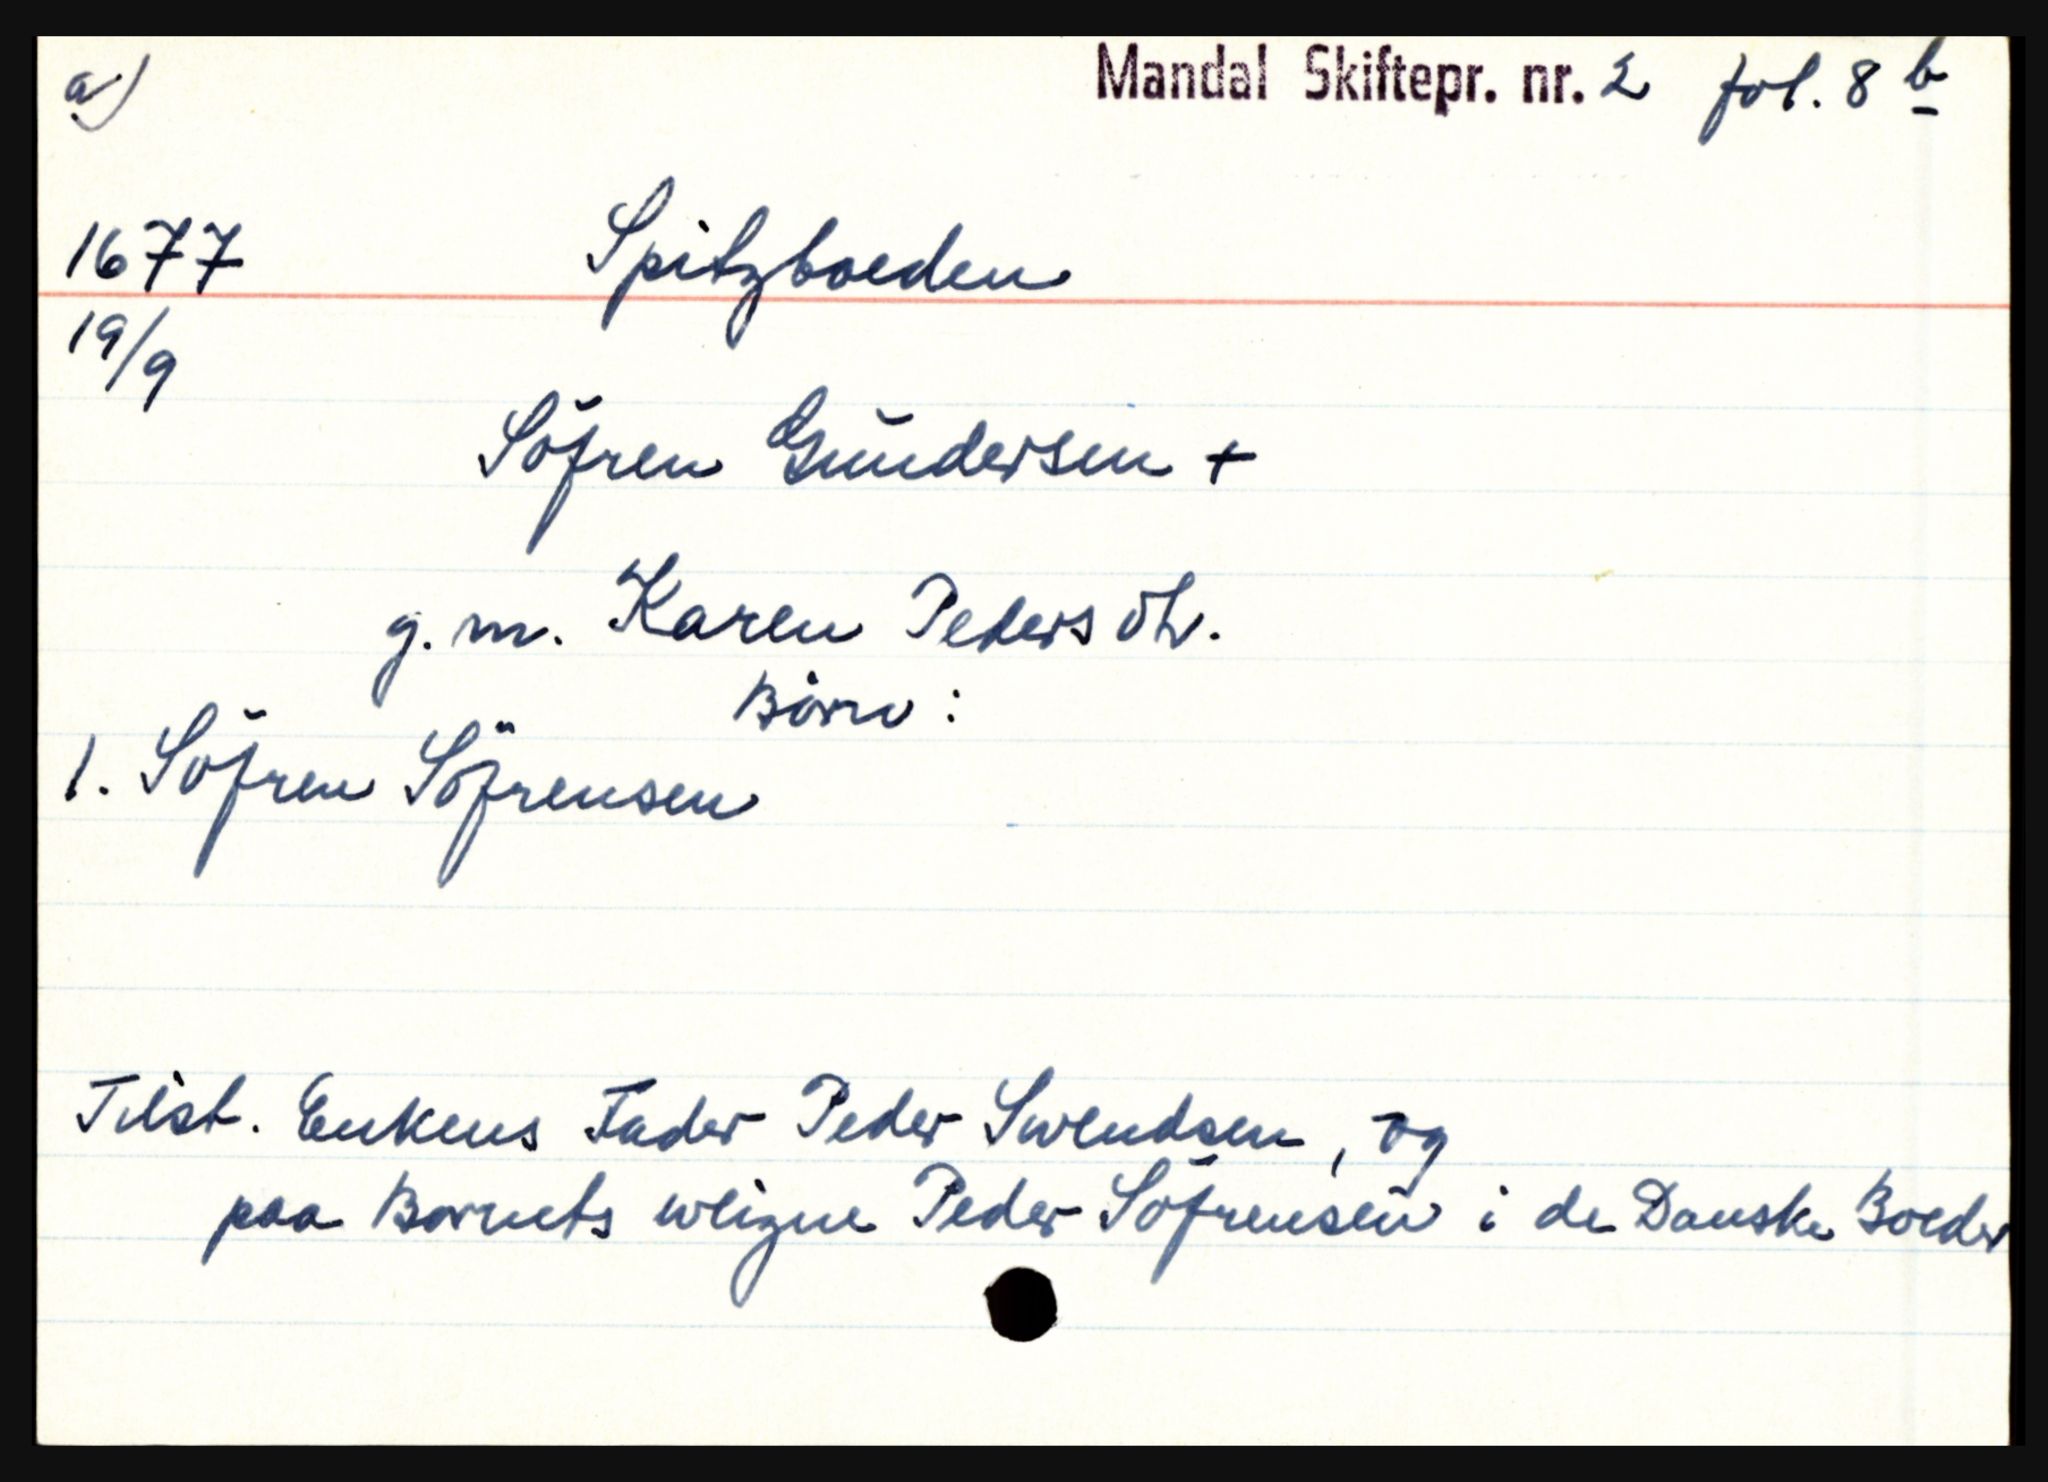 a) Mandal Skiftepr. nr. 2 fol. 8 b
1677 Spitzboeden
19/9
Söfren Gundersen +
g. m. Karen Peders dtr.
Börn :
1. Söfren Söfrensen
Tilst. Enkens Fader Peder Swendsen, og
paa Bornets weigne Peder Söfrensen i de Danske Boeder